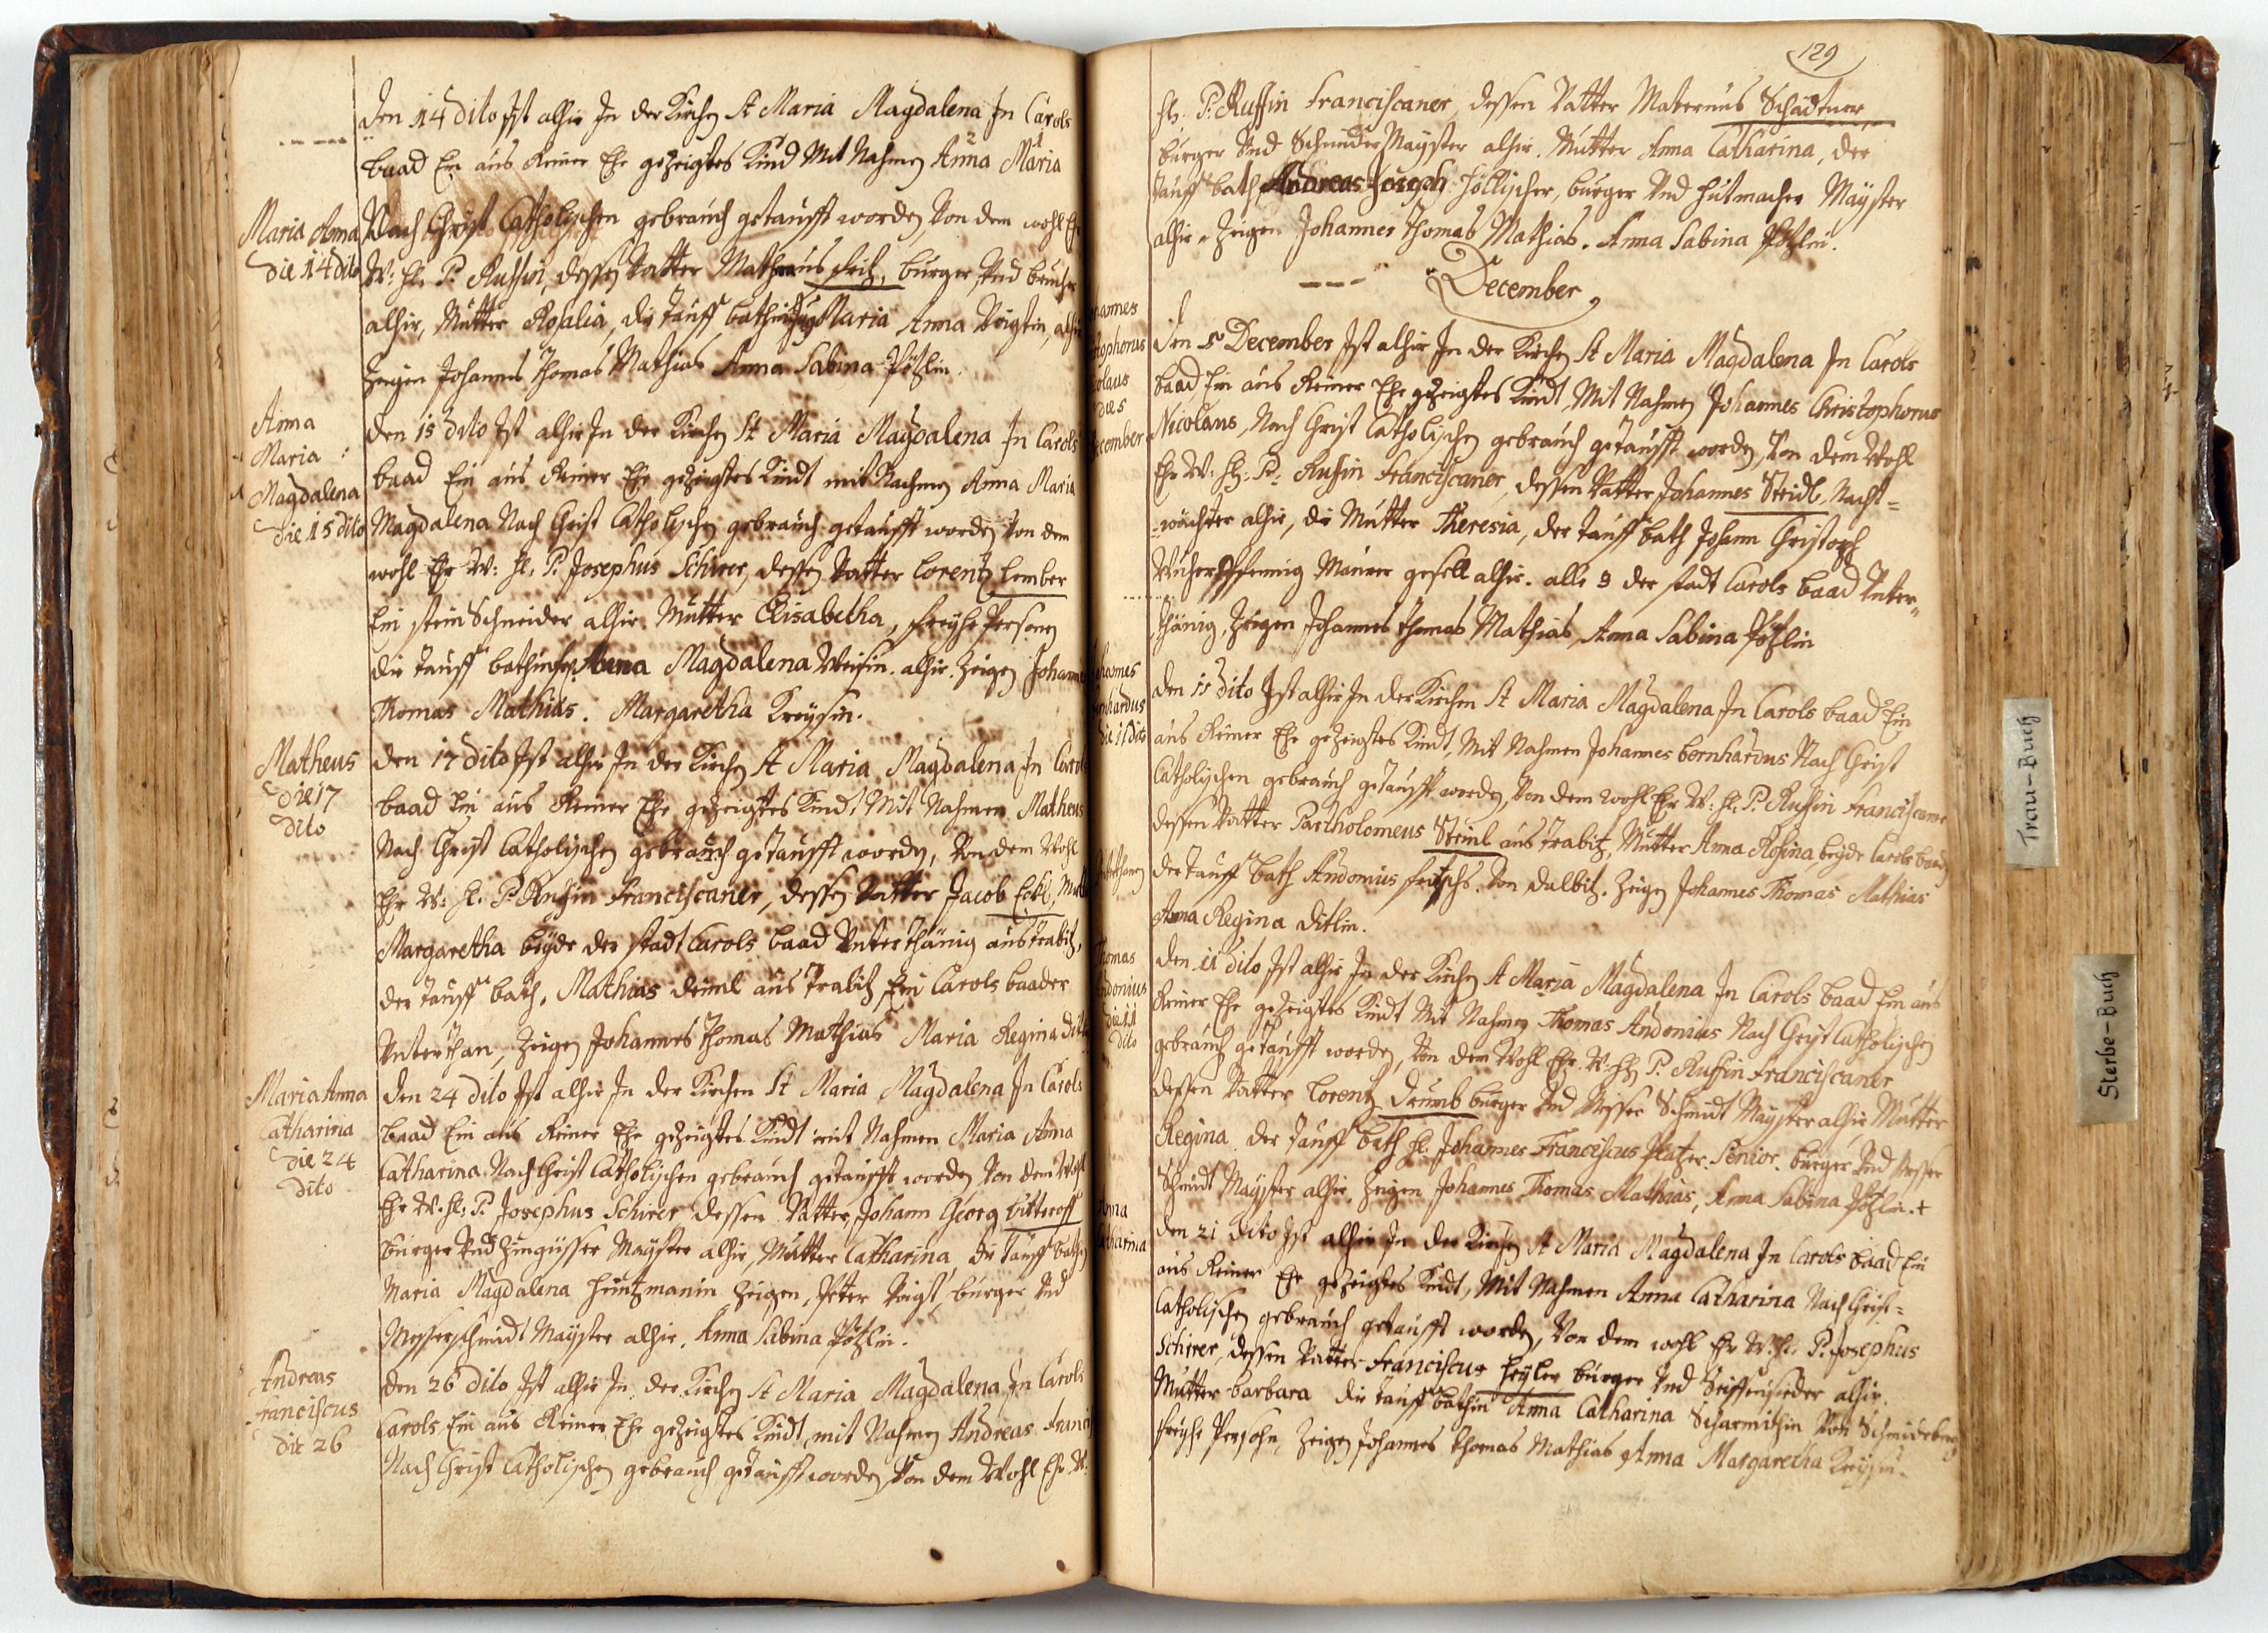 Den 14 dito Ist alhir In der Kirchen St Maria Magdalena In Carols
baad Ein aus Reiner Ehe gezeigtes Kind Mit Nahmen Anna Maria
Maria Anna
Die 14 dito
Nach Christ Catholischen gebrauch getaufft worden von dem wohl Eh
W: H: P: Ruffin, dessen Vatter Matheus burger Vnd
alhir, Mutter Rosalia, die Tauff bathin Maria Anna Voigtin, alhir
Zeigen Johannes Thomas Mathias Anna Sabina Pötzlin.
Anna
Maria
Magdalena
Die 15 dito
Den 15 dito Ist alhir In der Kirchen St Maria Magdalena In Carols
baad Ein aus Reiner Ehe gezeigtes Kindt mit Nahmen Anna Maria
Magdalena Nach Christ Catholischen gebrauch getaufft worden von dem
wohl Ehr W: H: P: Josephus Schirer, dessen Vatter Lorentz Lember
Ein stein Schneider alhir Mutter Elisabetha, freyhe Persohnen
die Tauff bathin Anna Magdalena Weisin. alhir. Zeigen Johannes
Thomas Mathias. Margaretha Kreysin.
Matheus
Die 17
Dito
Den 17 dito Ist alhir In der Kirchen St Maria Magdalena In Carols
baad Ein aus Reiner Ehe gezeigtes Kindt Mit Nahmen Matheus
Nach Christ Catholischen gebrauch getaufft worden, Von dem Wohl
Ehr W: H: P: Ruffin Franciscaner, dessen Vatter Jacob Eckl, Mutter
Margaretha beyde der stadt Carols baad Vnterthänig aus Trabitz,
der Tauff bath, Mathias Deiml aus Trabitz Ein Carols baader
Vnterthan, Zeigen Johannes Thomas Mathias Maria Regina
Maria Anna
Catharina
Die 24
Dito
Den 24 dito Ist alhir In der Kirchen St Maria Magdalena In Carols
baad Ein aus Reiner Ehe gezeigtes Kindt mit Nahmen Maria Anna
Catharina Nach Christ Catholischen gebrauch getaufft worden Von dem Wohl
Ehr W: H: P: Josephus Schirer dessen Vatter, Johann Georg bitteroff
burger Vnd Zingisser Mayster alhir, Mutter Catharina, die Tauff bathin
Maria Magdalena Heintzmanin Zeigen, Peter Voigt, burger Vnd
Messerschmidt Mayster alhir. Anna Sabina Pötzlin.
Andreas
Franciscus
Die 26
Den 26 dito Ist alhir In der Kirchen St Maria Magdalena In Carols
Carols Ein aus Reiner Ehe gezeigtes Kindt, mit Nahmen Andreas Franci
Nach Christ Catholischen gebrauch getaufft worden Von dem Wohl Ehr. W.
129
H: P: Ruffin Franciscaner, dessen Vatter Maternus Schadtner
burger Vnd Schneider Mayster alhir. Mutter Anna Catharina, der
Tauff bath Andreas Joseph Höllischer, burger Vnd Hutmacher Mayster
alhir. Zeigen Johannes Thomas Mathias. Anna Sabina Pötzlin.
December
annes
stophorus
colaus
Die 5
ecember
Den 5 December Ist alhir In der Kirchen St Maria Magdalena In Carols
baad Ein aus Reiner Ehe gezeigtes Kindt, Mit Nahmen Johannes Christophorus
Nicolaus, Nach Christ Catholischen gebrauch getaufft worden, Von dem Wohl
Ehr W: H: P: Ruffin Franciscaner, dessen Vatter Johannes Steidl, Nacht=
=wächter alhir, die Mutter Theresia, der Tauff bath Johann Christoph
Maurer gesell alhir. alle 3 der stadt Carols baad Vnter„
thänig, Zeigen Johannes Thomas Mathias, Anna Sabina Pötzlin
hannes
rnhardus
Die 11 Dito
Den 11 dito Ist alhir In der Kirchen St Maria Magdalena In Carols baad Ein
aus Reiner Ehe gezeigtes Kindt, Mit Nahmen Johannes bernhardus Nach Christ
Catholischen gebrauch getaufft worden, Von dem wohl Ehr W: H: P: Ruffin Franciscaner
dessen Vatter Partholomeus Steinl aus Trabitz, Mutter Anna Rosina, beyde Carols baad
der Tauff bath Andonius Fritschs. Von Dalbitz. Zeigen Johannes Thomas Mathias
Anna Regina Ditlin.
Thomas
Andonius
Die 11
Dito
Den 11 dito Ist alhir In der Kirchen St Maria Magdalena In Carols baad Ein aus
Reiner Ehe gezeigtes Kindt Mit Nahmen Thomas Andonius Nach Christ Catholischen
gebrauch getaufft worden, Von dem Wohl Ehr. W: H: P: Ruffin Franciscaner
dessen Vatter Lorentz Deimb burger Vnd Messer Schmidt Mayster alhir Mutter
Regina der Tauff bath H: Johannes Franciscus Platzer. Senior. burger Vnd Messer
Schmidt Mayster alhir, Zeigen Johannes Thomas Mathias, Anna Sabina Pötzlin. +
Anna
Catharina
Den 21 dito Ist alhir In der Kirchen St Maria Magdalena In Carols baad Ein
aus Reiner Ehe gezeigtes Kindt, Mit Nahmen Anna Catharina Nach Christ=
Catholischen gebrauch getaufft worden, Von dem wohl Ehr W: H: P: Josephus
Schirer, dessen Vatter Franciscus Heyler burger Vnd Seiffensieder alhir.
Mutter barbara die Tauff bathin Anna Catharina Scharmithin Von Schmideberg
freyhe Persohn, Zeigen Johannes Thomas Mathias Anna Margaretha Kreysin.
Trau-Buch
Sterbe-Buch